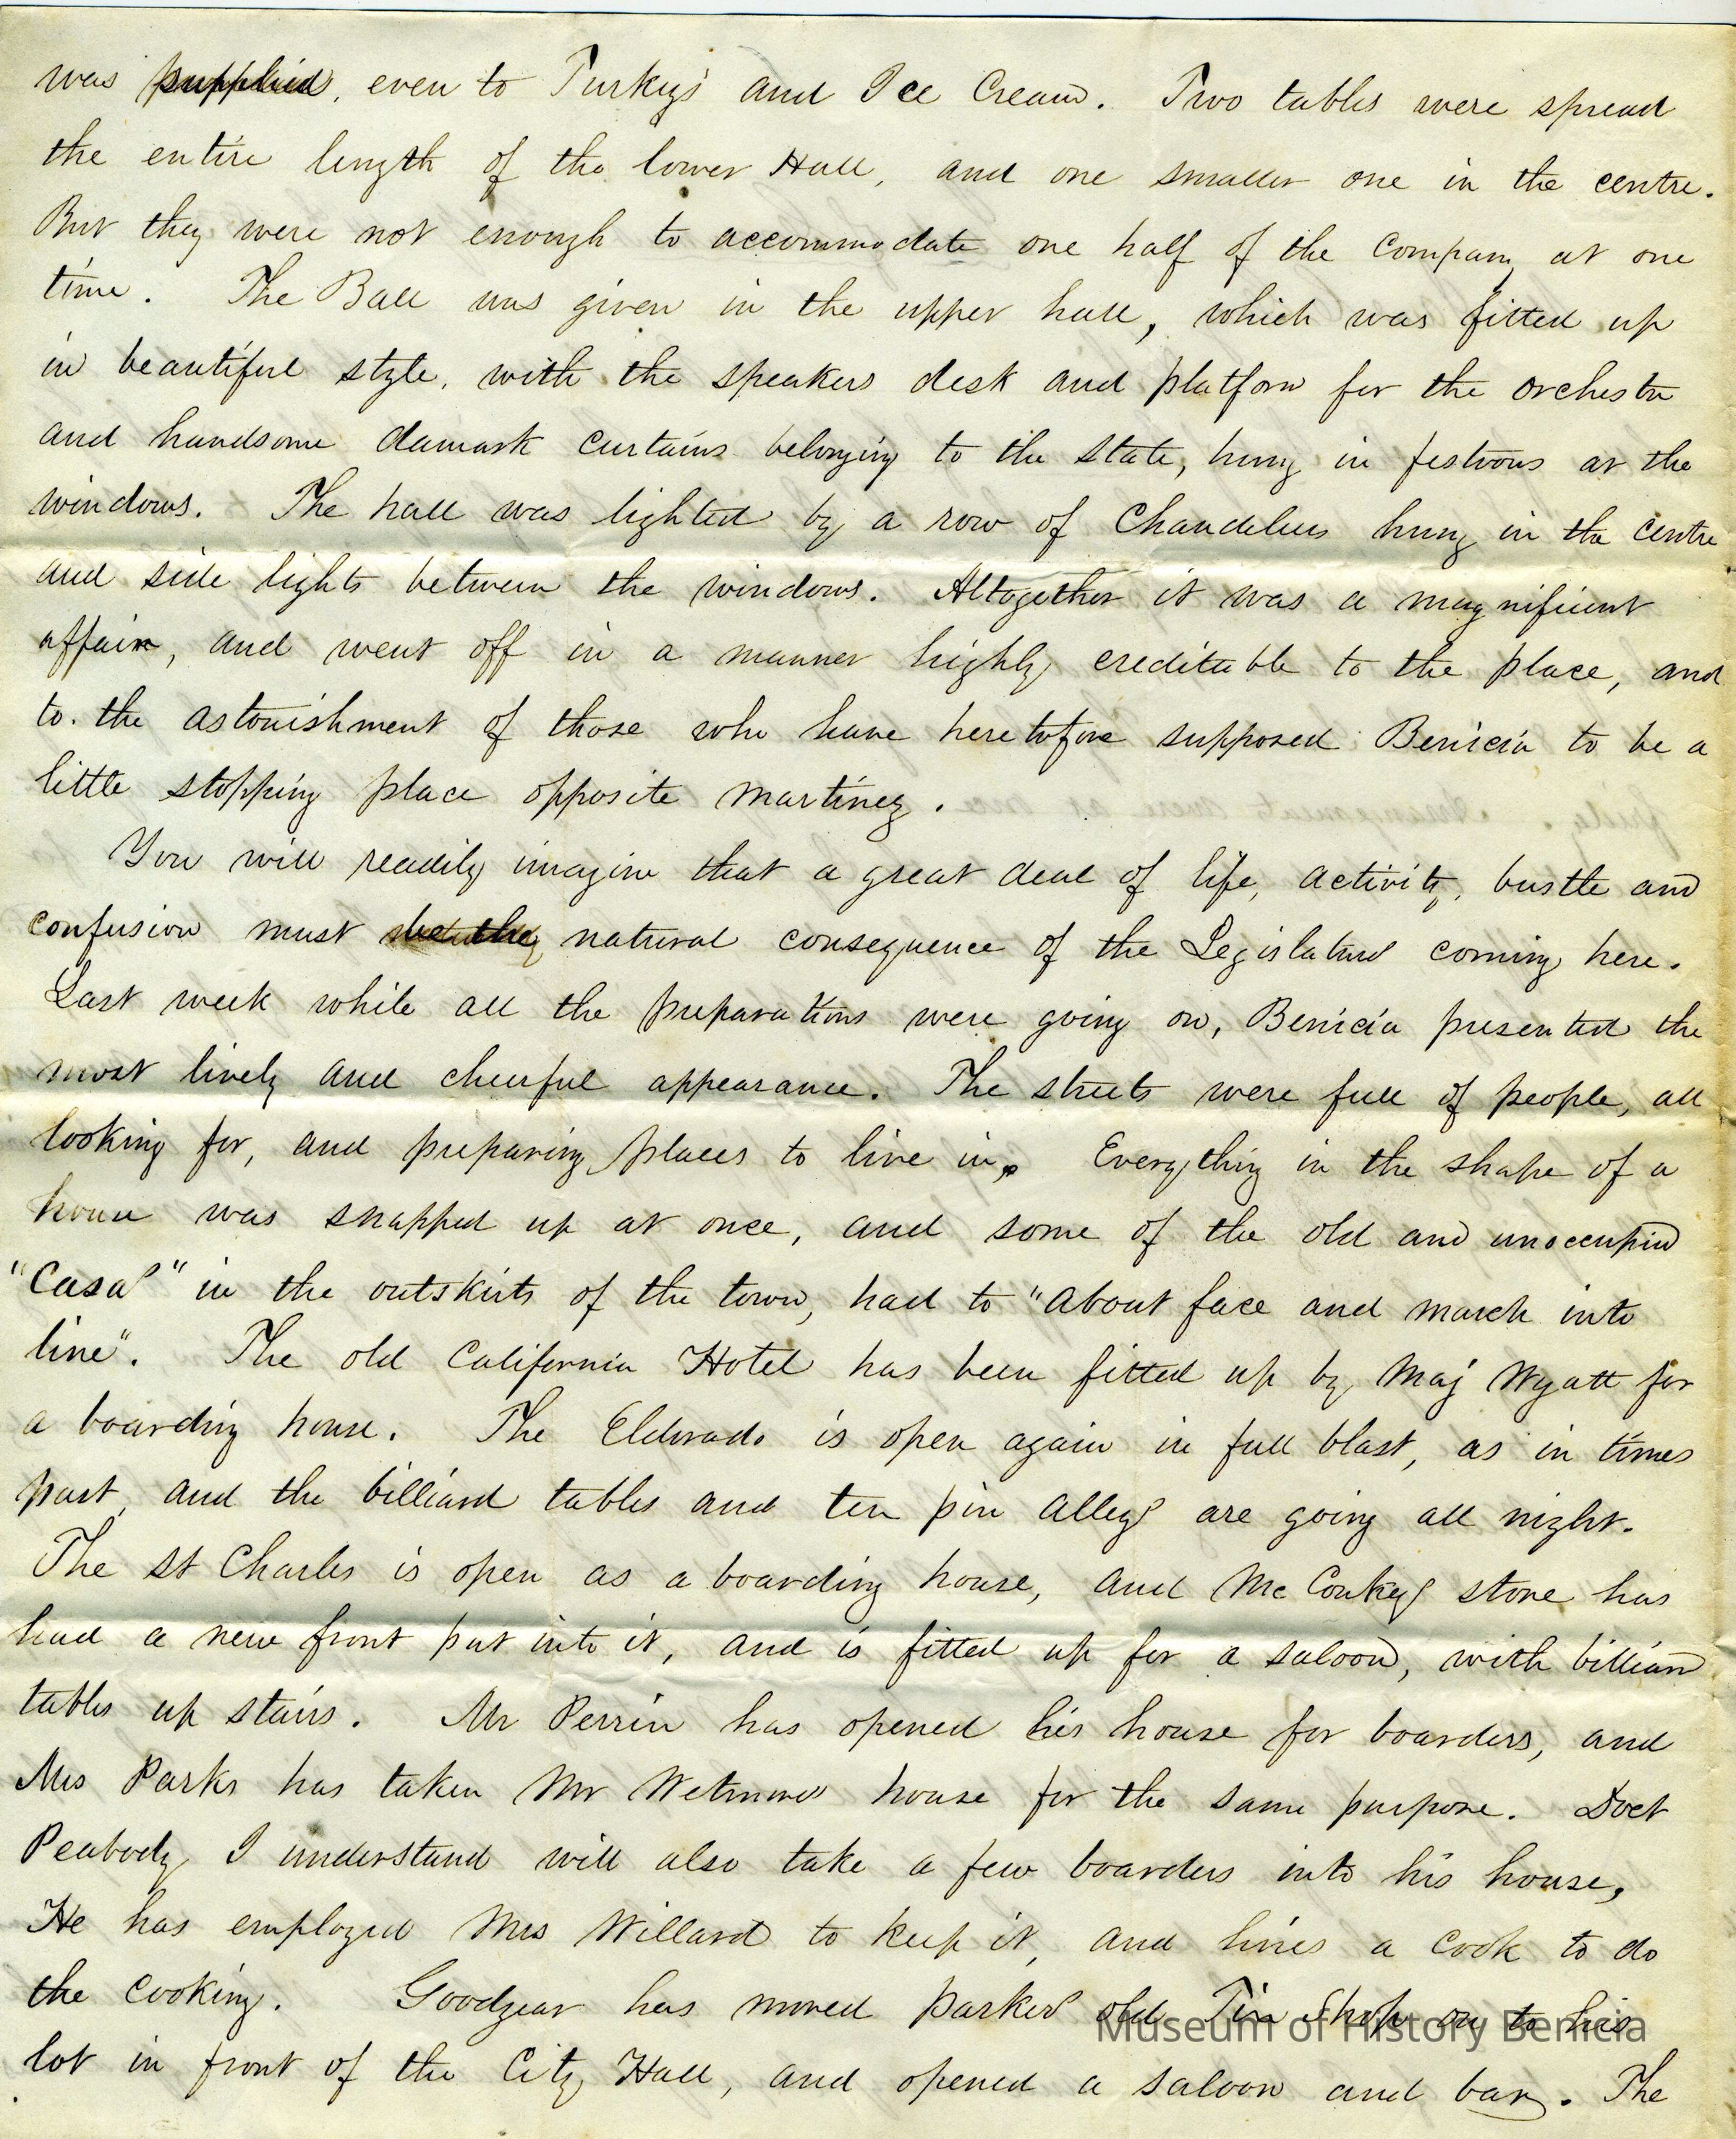 was supplied, even to Turkeys and Ice Cream. Two tables were spread
the entire length of the lower Hall, and one smaller one in the centre.
But they were not enough to accommodate one half of the Company at one
time. The Ball was given in the upper hall, which was fitted up
in beautiful style, with the speakers desk and platform for the orchestra
and handsome damask curtains belonging to the State, hung in festoons at the
windows. The hall was lighted by a row of Chandeliers hung in the centre
and side lights between the windows. Altogether it was a magnificent
affair, and went off in a manner highly creditable to the place, and
to the astonishment of those who have heretofore supposed Benicia to be a
little stopping place opposite Martinez.
You will readily imagine that a great deal of life, activity, bustle and
confusion must be the natural consequence of the Legislature coming here.
Last week while all the preparations were going on, Benicia presented the
most lively and cheerful appearance. The streets were full of people, all
looking for, and preparing places to live in. Everything in the shape of a
house was snapped up at once, and some of the old and unoccupied
"Casas" in the outskirts of the town, had to "about face and march into
line". The old California Hotel has been fitted up by Maj Wyatt for
a boarding house. The Eldorado is open again in full blast, as in times
past, and the billiard tables and ten pin alleys are going all night.
The St Charles is open as a boarding house, and McConkeys store has
had a new front put into it, and is fitted up for a saloon, with billiard
tables up stairs. Mr Perrin has opened his house for boarders, and
Mrs Parks has taken Mr Wetmores house for the same purpose. Doct
Peabody I understand will also take a few boarders into his house,
He has employed Mrs Willard to keep it, and hires a cook to do
the cooking. Goodyear has moved Parkers old Tin Shop on to his
lot in front of the City Hall, and opened a saloon and bar. The
Museum of History Benicia